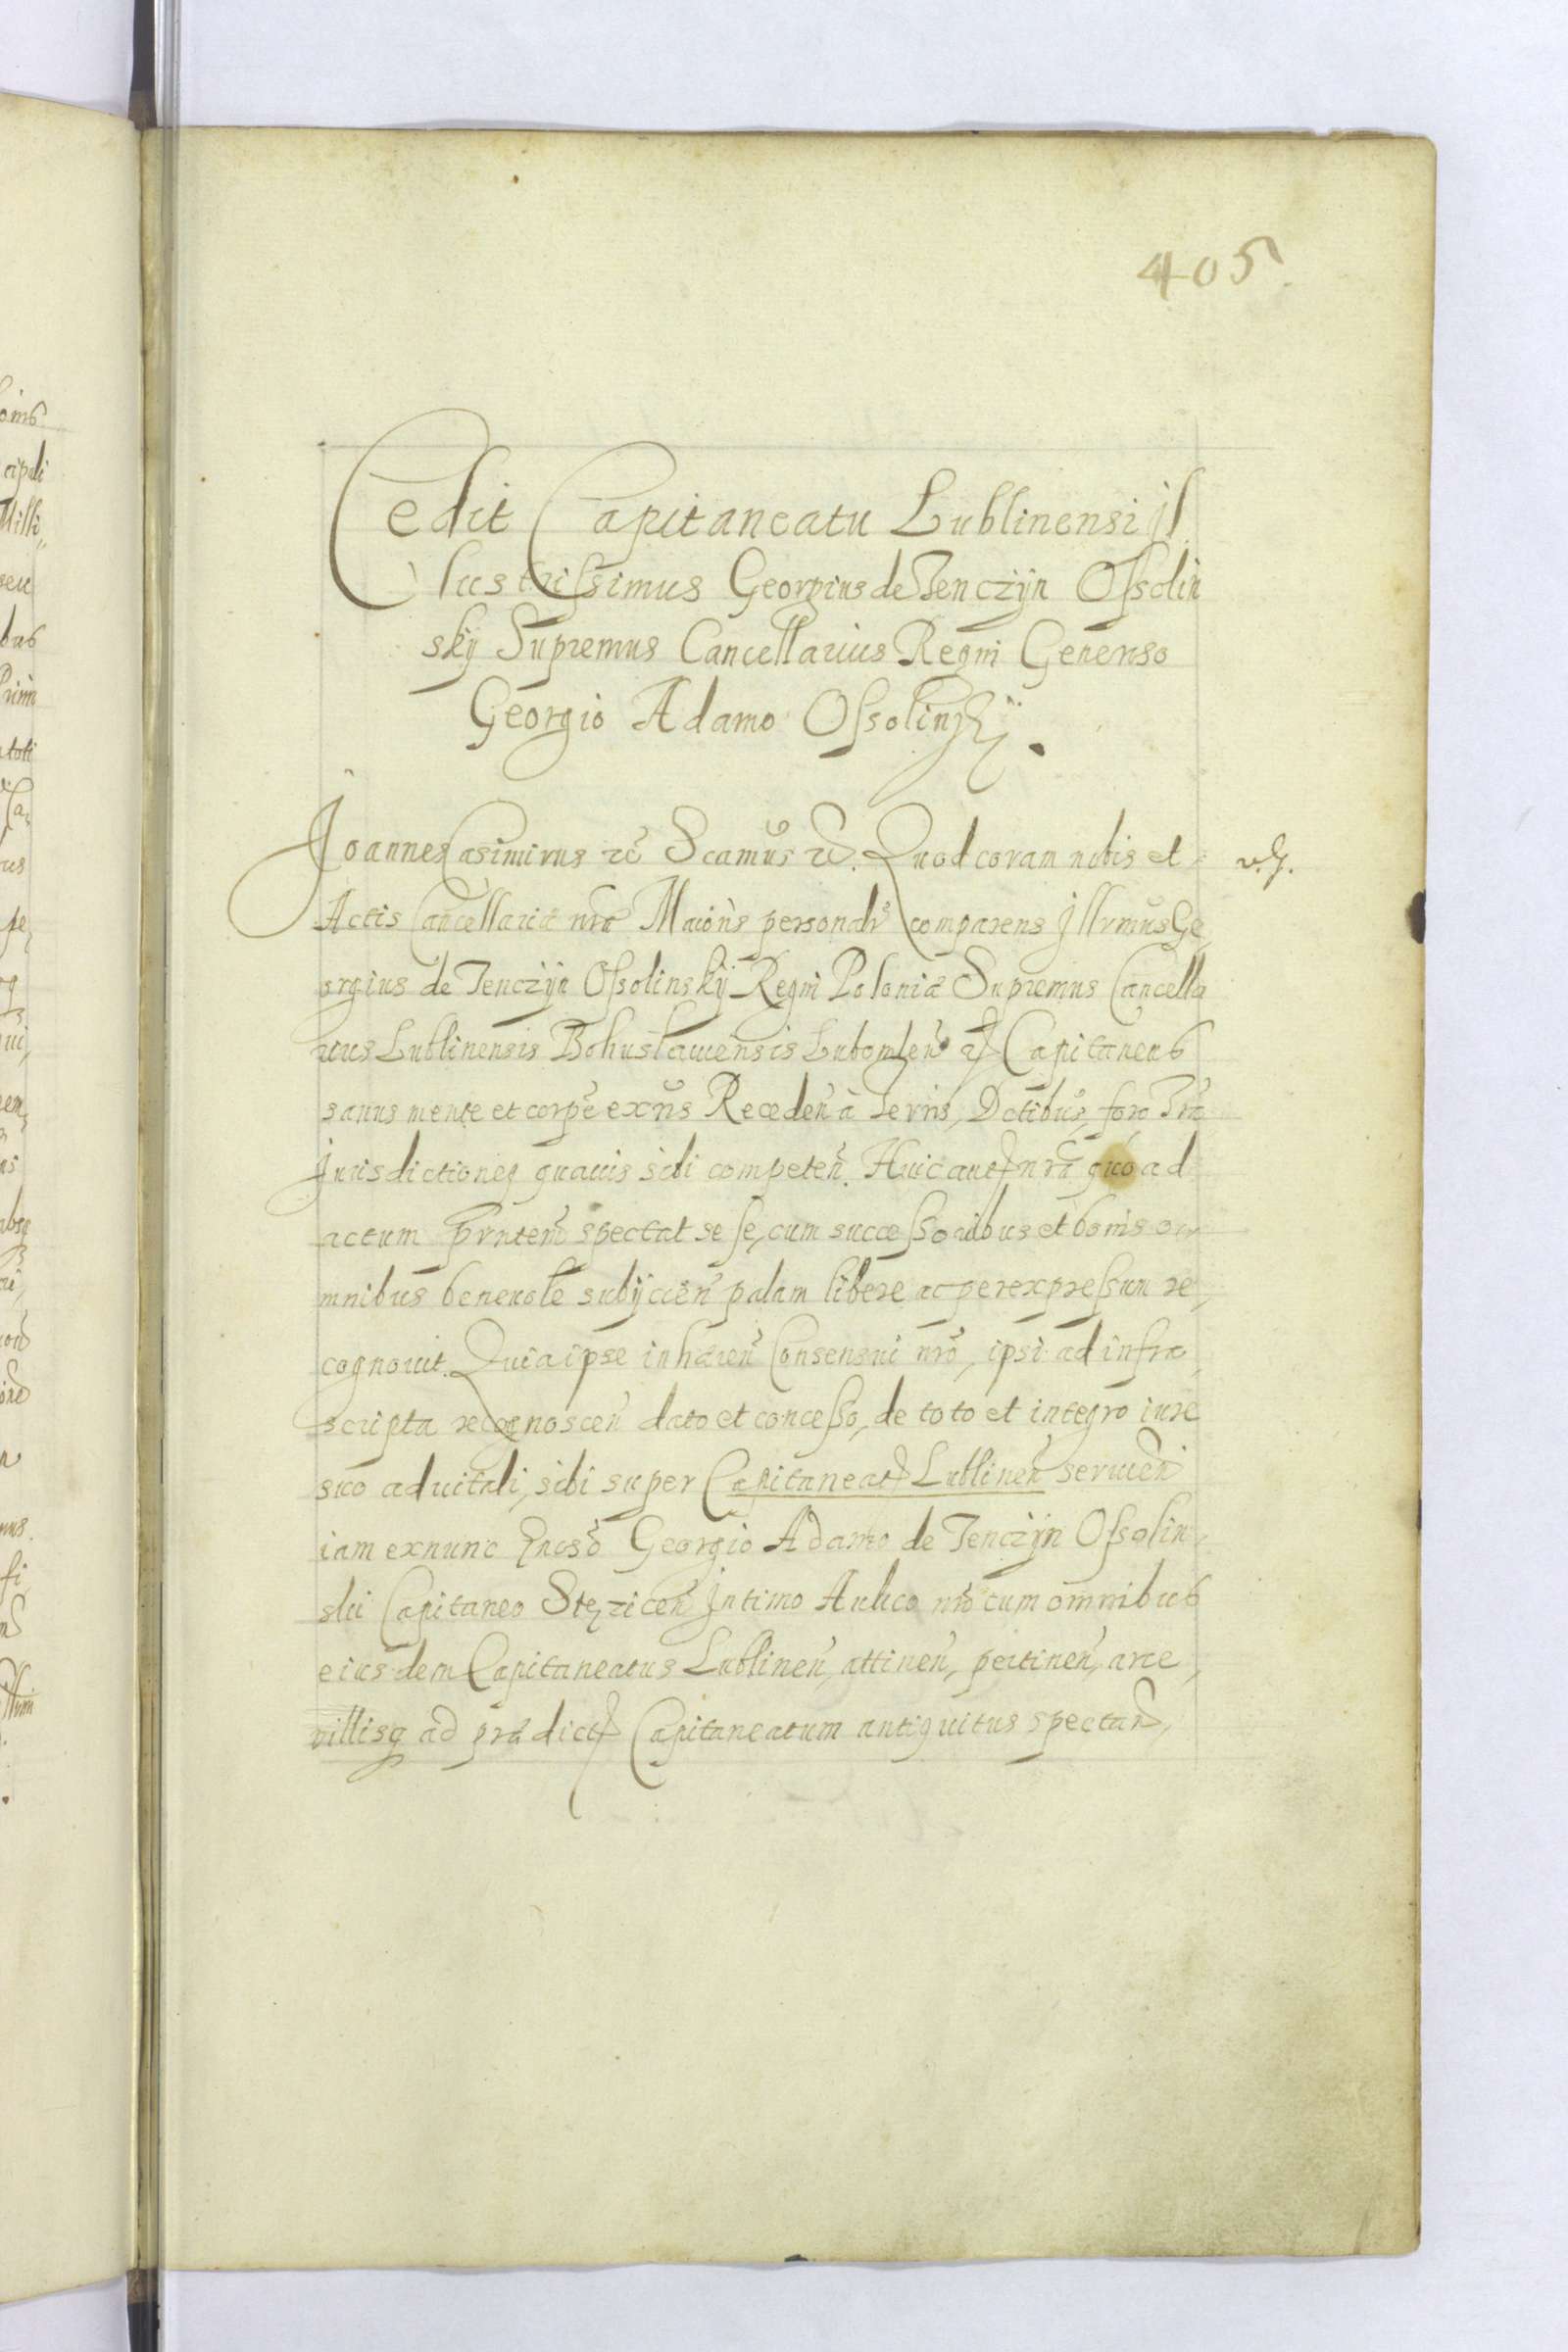 405.
Cedit Capitaneatu Lublinensi Il
lustrissimus Georgius de Tenczÿn Ossolin
skÿ Supremus Cancellarius Regni Generoso
Georgio Adamo Ossolinskÿ.
Joannes Casimirus etc̃ Scamus etc̃. Quod coram nobis et
Actis Cancellariæ nr̃æ Maioris personalr̃ comparens Illrmus Ge,
orgius de Tenczÿn Ossolinskÿ Regni Poloniæ Supremus Cancella
rius Lublinensis Bohuslauiensis Lubomlen̄ etc̃ Capitaneus
sanus mente et corpe exn̄s Receden̄ à Terris, Dctibus, foro
Jurisdictioneq quauis sibi competen̄. Huic autem nrã quo ad
actum prntem spectat sese, cum successoribus et bonis o,
mnibus beneuole subÿcien̄ palam libere ac per expressum re,
cognouit. Quia ipse inhæren̄ Consensui nrõ, ipsi ad infra,
scripta recognoscen̄ dato et concesso, de toto et integro iure
suo aduitali, sibi super Capitaneatu Lublinen̄ seruien̄
iam exnunc Gnoso Georgio Adamo de Tenczÿn Ossolin,
skii Capitaneo Stęzicen̄ Intimo Aulico nrõ cum omnibus
eiusdem Capitaneatus Lublinen̄, attinen̄, pertinen̄, arce,
villisq ad prædictum Capitaneatum antiquitus spectan̄,